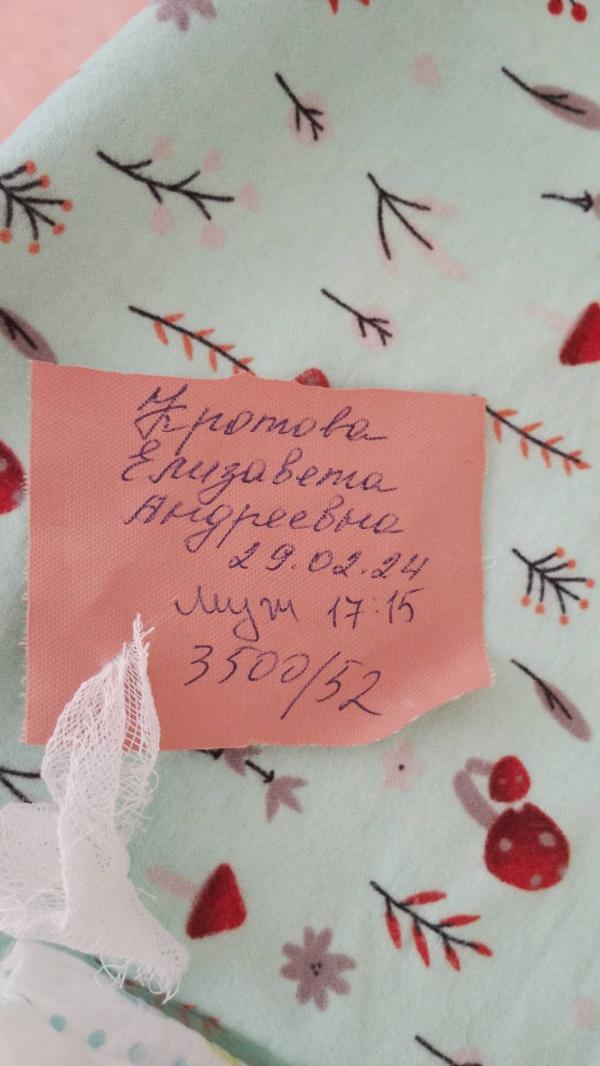 Кротова
Елизавета
Андреевна
29.02.24
муж 17:15
3500/52